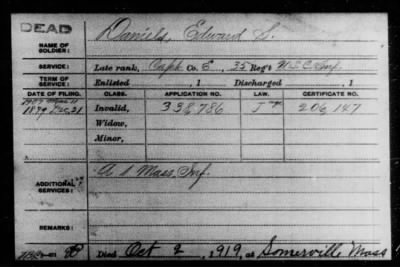 DEAD
NAME OF SOLDIER: Daniels, Edward S.
SERVICE: Late rank, Capt. Co. E, 35 Reg't U.S.C. Inf.
TERM OF SERVICE: Enlisted , 1 Discharged , 1
DATE OF FILING. CLASS. APPLICATION NO. LAW. CERTIFICATE NO.
1907
1879 Dec. 21 Invalid, 338,786 206,147
Widow,
Minor,
ADDITIONAL SERVICES: Mass. Inf.
REMARKS:
Died Oct 2, 1919, at Somerville Mass